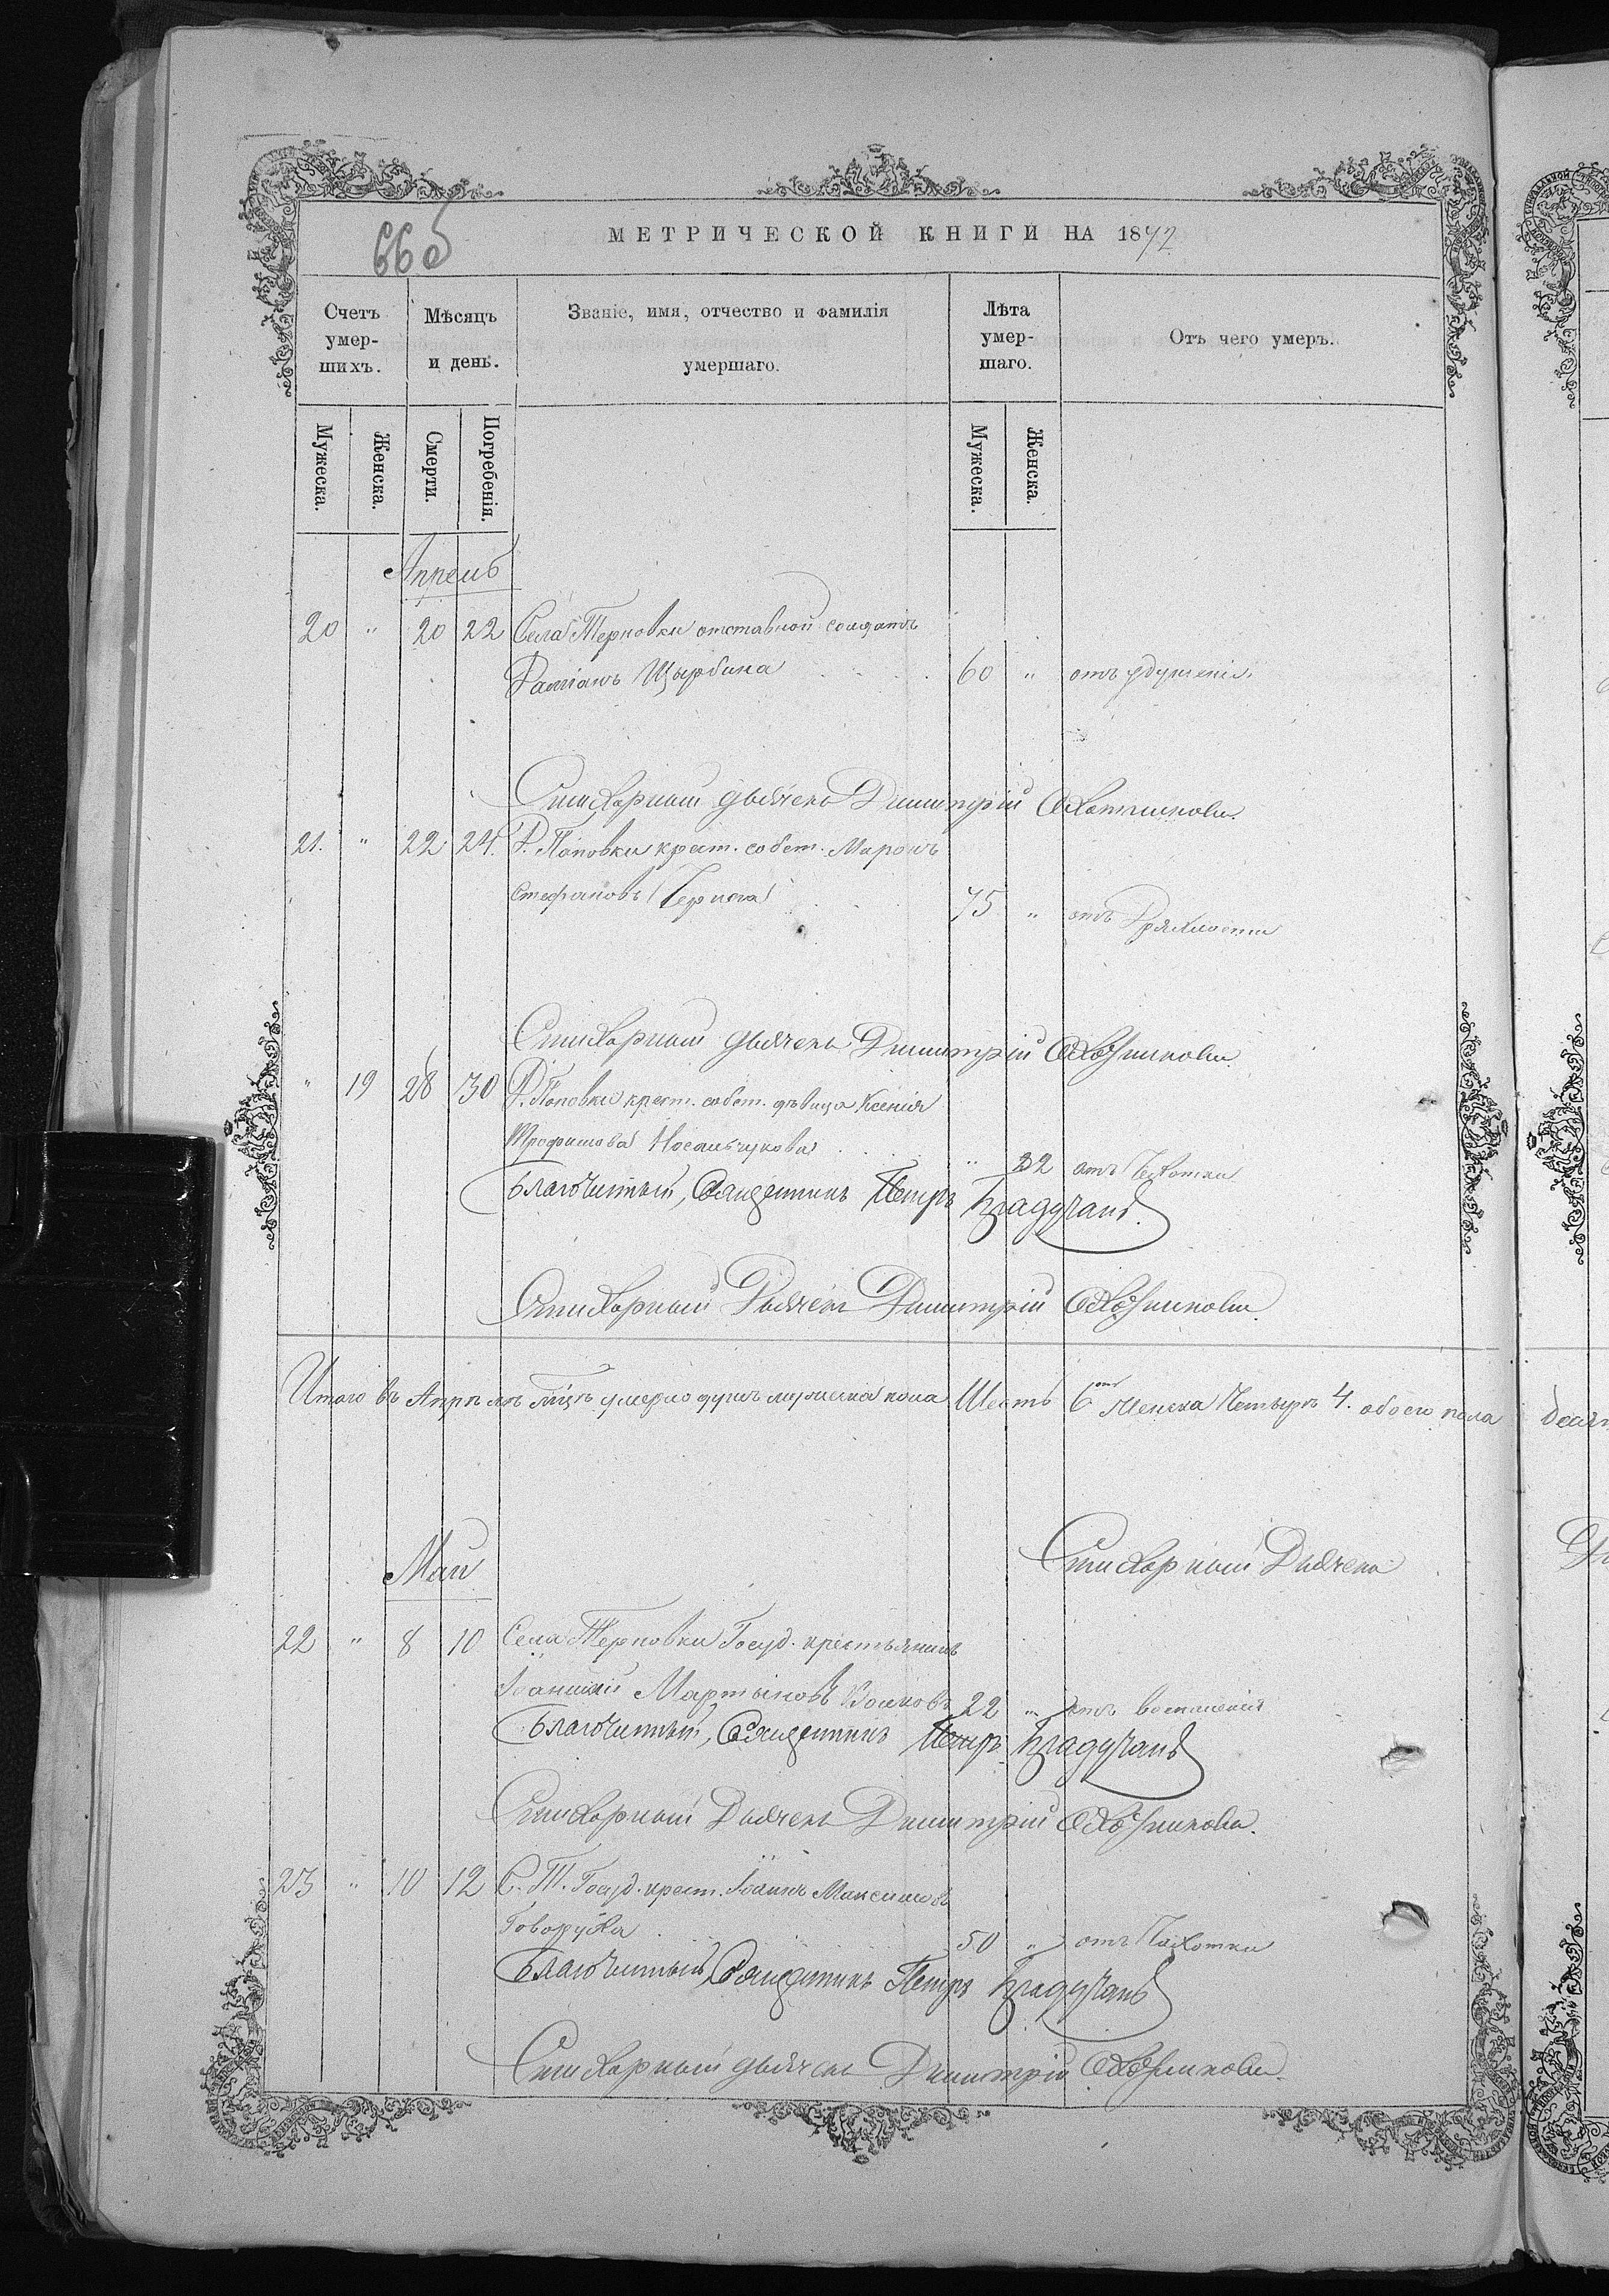 66об
МЕТРИЧЕСКОЙ КНИГИ НА 1872
Счетъ умер-шихъ.
Мѣсяцъ и день.
Званіе, имя, отчество и фамилія умершаго.
Лѣта умер-шаго.
Отъ чего умеръ.
Мужеска. Женска. Смерти. Погребенія. Мужеска. Женска.
Апрель
20 " 20 22 Села Терновки отставной солдатъ
Даміанъ Щырбина 60 " отъ удушенія.
Стихарный дьячекъ Димитрій
21. " 22 24. Д. Поповки крест. собст. Миронъ
Стефановъ Чернега 75 " отъ Дряхлости
Стихарный дьячекъ Димитрій
" 19 28 30 Д. Поповки крест. собст. дѣвица Ксенія
Трофимова Носальчукова " 22 отъ Чахотки
Благочинный, Священникъ Петръ
Стихарный Дьячекъ Димитрій
Итого въ Апрѣлѣ мцѣ умерло душъ мужеска пола Шесть 6 женска Четыре 4. обоего пола
Май
Стихарный Дьячекъ
22 " 8 10 Села Терновки Госуд. крестьянинъ
Іоанникій Мартыновъ Волковъ 22 " отъ воспаленія
Благочинный, Священникъ Петръ
Стихарный Дьячекъ Димитрій
23 " 10 12 С. Т. Госуд. крест. Іоаннъ Максимовъ
Говоруха 50 " отъ Чахотки
Благочинный, Священникъ Петръ
Стихарный дьячекъ Димитрій